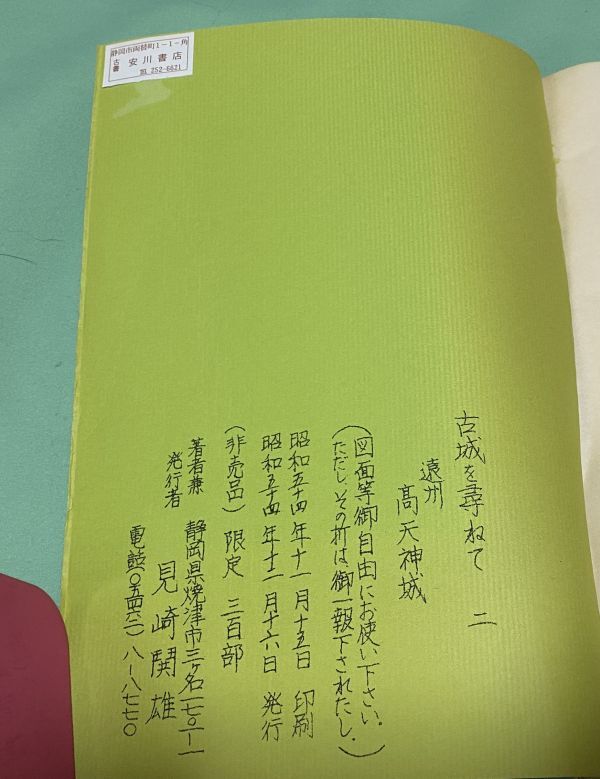 静岡市両替町1-1-角
古書 安川書店
TEL 252-6621
古城を尋ねて 二
遠州 高天神城
(図面等御自由にお使い下さい。
ただし、その折は、御一報下されたし。)
昭和五十四年十一月十五日 印刷
昭和五十四年十二月十六日 発行
(非売品) 限定 三百部
著者兼
発行者
静岡県焼津市三ヶ名一七〇ー一
見崎鬨雄
電話〇五四六二ー八ー八七七〇